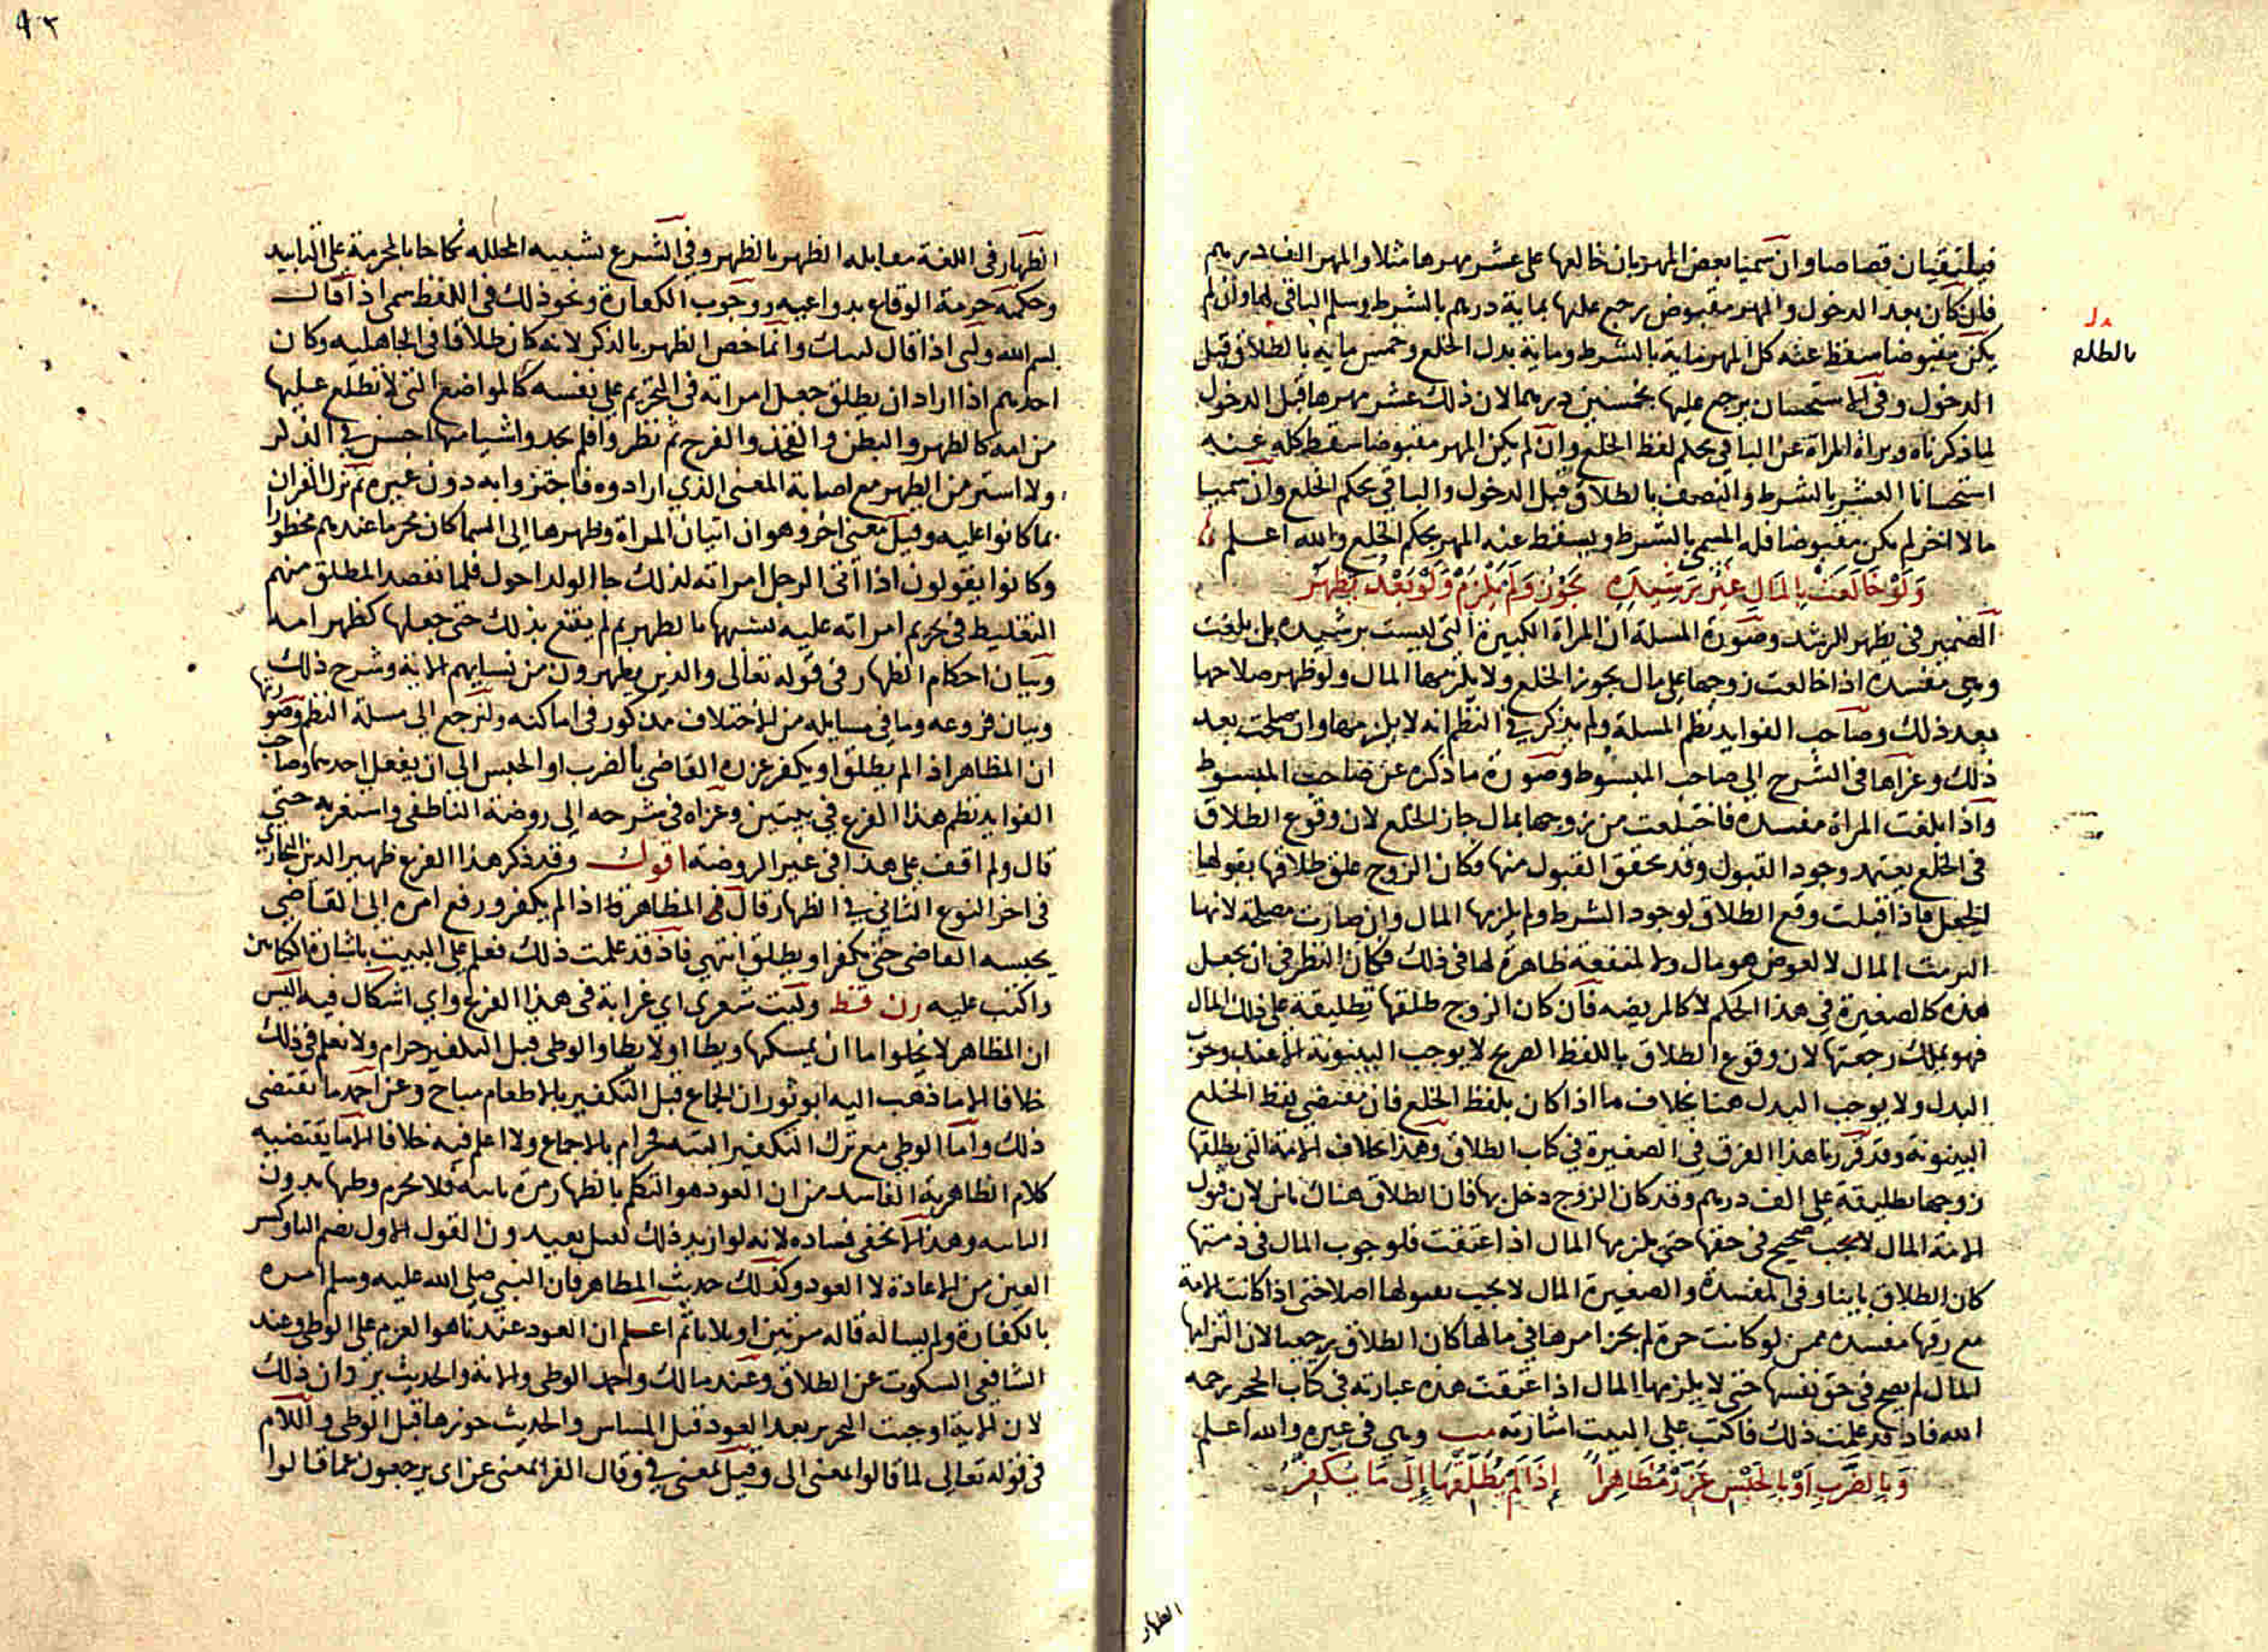 فيلتقيان قصاصا وان سميا بعض المهر بان خالعها على عشر مهرها مثلا والمهر الف درهم
فان كان بعد الدخول والمهر مقبوض يرجع عليها بماية درهم بالشرط وسلم الباقي لها وان لم
يكن مقبوضا سقط عنه كل المهر ماية بالشرط وماية بدل الخلع وخمس ماية بالطلاق قبل
الدخول وفي الاستحسان يرجع عليها بخمسين درهما لان ذلك عشر مهرها قبل الدخول
لما ذكرناه وبراة المراة عن الباقي بحكم لفظ الخلع وان لم يكن المهر مقبوضا سقط كله عنه
استحسانا العشر بالشرط والنصف بالطلاق قبل الدخول والباقي بحكم الخلع وان سميا
مالا اخر لم يكن مقبوضا فله المسمى بالشرط ويسقط عنه المهر بحكم الخلع والله اعلم
وَلَوْ خَالَعَتْ بِالمَالِ غَيْر رَشِيدَةٍ يجُوْزُ وَلَمْ يَلْزَمْ وَلَوْ بَعْدُ يَظْهَر
الضمير في يظهر للرشد وصورة المسلة ان المراة الكبيرة التي ليست برشيدة بل بلغت
وهي مفسدة اذا خالعت زوجها على مال يجوز الخلع ولا يلزمها المال ولو ظهر صلاحها
بعد ذلك وصاحب الفوايد نظم المسلة ولم يذكر في النظم انه لا يلزمها وان صلحت بعد
ذلك وعزاها في الشرح الى صاحب المبسوط وصورة ما ذكره عن صاحب المبسوط
واذا بلغت المراة مفسدة فاختلعت من زوجها بمال جاز الخلع لان وقوع الطلاق
في الخلع يعتمد وجود القبول وقد تحقق القبول منها وكان الزوج علق طلاقها بقبولها
الجعل فاذا قبلت وقع الطلاق لوجود الشرط ولم يلزمها المال وان صارت مصلحة لانها
التزمت المال لا لعوض هو مال ولا لمنفعة ظاهرة لها في ذلك فكان النظر في ان يجعل
هذه كالصغيرة في هذا الحكم لا كالمريضه فان كان الزوج طلقها تطليقة على ذلك المال
فهو يملك رجعتها لان وقوع الطلاق باللفظ الصريح لا يوجب البينونة الا عند وجوب
البدل ولا يوجب البدل هنا بخلاف ما اذا كان بلفظ الخلع فان مقتضي لفظ الخلع
البينونة وقد قررنا هذا الفرق في الصغيرة في كتاب الطلاق وهذا بخلاف الامة التي يطلقها
زوجها تطليقة على الف درهم وقد كان الزوج دخل بها فان الطلاق هناك باين لان قبول
الامة المال صحيح في حقها حتى يلزمها المال اذا اعتقت فلوجوب المال في ذمتها
كان الطلاق باينا وفي المفسدة والصغيرة المال لا يجب بقبولها اصلا حتى اذا كانت الامة
مع رقها مفسدة ممن لو كانت حرة لم يجز امرها في مالها كان الطلاق رجعيا لان التزامها
المال لم يصح في حق نفسها حتى لا يلزمها المال اذا اعتقت هذه عبارته في كتاب الحجر رحمه
الله فاذا قد علمت ذلك فاكتب على البيت اشارته مب وهي في غيره والله اعلم
وَبِالضَّرْبِ اَوْ بِالحَبْسِ عَزَّرْ مُظَاهِراً إِذَا لَمْ يُطَلِّقْهَا إِلَى مَا يُكَفِّرُ
بالطلاق
الظهار
٩٢
الظهار في اللغة مقابله الظهر بالظهر وفي الشرع تشبيه المحلله نكاحا بالمحرمة على التابيد
وحكمه حرمة الوقاع بدواعيه ووجوب الكفارة ونحو ذلك في اللفظ سمى اذا قال
بسم الله ولبى اذا قال لبيك وانما خص الظهر بالذكر لانه كان طلاقا في الجاهليه وكان
احدهم اذا اراد ان يطلق جعل امراته في التحريم على نفسه كالمواضع التي لا تطلع عليها
من امه كالظهر والبطن والفخذ والفرج ثم نظروا فلم يجدوا شيا منها احسن في الذكر
ولا استر من الظهر مع اصابة المعنى الذي ارادوه فاجتزوا به دون غيره ثم نزل القران
بما كانوا عليه وقيل معنى اخر وهو ان اتيان المراة وظهرها الى السما كان محرما عندهم محظورا
وكانوا يقولون اذا اتى الرجل امراته لذلك جا الولد احول فلما قصد المطلق منهم
التغليظ في تحريم امراته عليه شبهها بالظهر ثم لم يقنع بذلك حتى جعلها كظهر امه
وبيان احكام الظهار في قوله تعالى والذين يظهرون من نسايهم الاية وشرح ذلك
وبيان فروعه وما في مسايله من الاختلاف مذكور في اماكنه ولنرجع الى مسلة النظم وصورتها
ان المظاهر اذا لم يطلق او يكفر عزره القاضي بالضرب او الحبس الى ان يفعل احدهما وصاحب
الفوايد نظم هذا الفرع في بيتين وعزاه في شرحه الى روضة الناطفي واستغربه حتى
قال ولم اقف على هذا في غير الروضه اقول وقد ذكر هذا الفرع ظهير الدين البخاري
في اخر النوع الثاني في الظهار قال في المظاهر اذا لم يكفر ورفع امره الى القاضي
يحبسه القاضي حتى يكفر او يطلق انتهى فاذ قد علمت ذلك فعلم على البيت باشارة الكتابين
واكتب عليه رن فقط وليت شعري اي غرابة في هذا الفرع واي اشكال فيه اليس
ان المظاهر لا يخلو اما ان يمسكها ويطا او لا يطا والوطي قبل التكفير حرام ولا نعلم في ذلك
خلافا الا ما ذهب اليه ابو ثور ان الجماع قبل التكفير بالاطعام مباح وعن احمد ما يقتضي
ذلك واما الوطي مع ترك التكفير البته فحرام بالاجماع ولا اعلم فيه خلافا الا ما يقتضيه
كلام الظاهرية الفاسد من ان العود هو التكلم بالظهار مرة ثانيه فلا يحرم وطيها بدون
الثانيه وهذا لا يخفى فساده لانه لو اريد ذلك لقيل يعيدون القول الاول بضم اليا وكسر
العين من الاعادة لا العود وكذلك حديث المظاهر فان النبي صلى الله عليه وسلم امره
بالكفارة ولم يساله قاله مرتين او لا ثم اعلم ان العود عندنا هو العزم على الوطي وعند
الشافعي السكوت عن الطلاق وعند مالك واحمد الوطي والاية والحديث يردان ذلك
لان الاية اوجبت التحرير بعد العود قبل المساس والحديث جوزها قبل الوطي واللام
في قوله تعالى لما قالوا لمعنى الى وقيل لمعنى في وقال الفرا بمعنى عن اي يرجعون عما قالوا